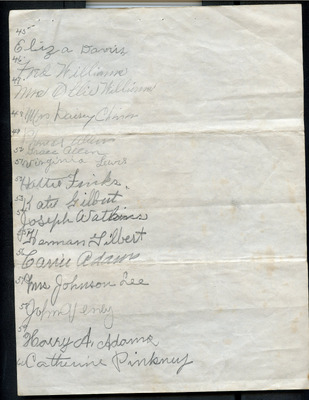 45
Eliza Davis
46
Fred Williams
47
Mrs Ollie Williams
48 Mrs Chinn
49
50
Grace Allen
51 Virginia Lewis
52
Hattie Finks.
53
Kate Gilbert
54
Joseph Watkins
55
Herman Gilbert
56
Carrie Adams
57
Mrs Johnson Lee
58
John Veney
59
Harry A. Adams
60 Catherine Pinkney